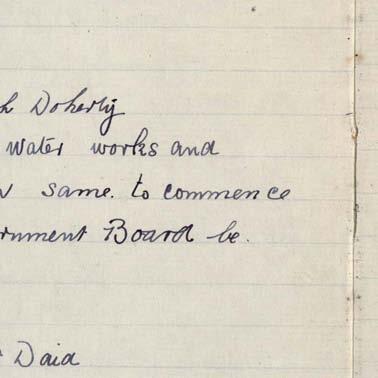 h Doherty
water works and
same. to commence
rnment Board be.
Daid